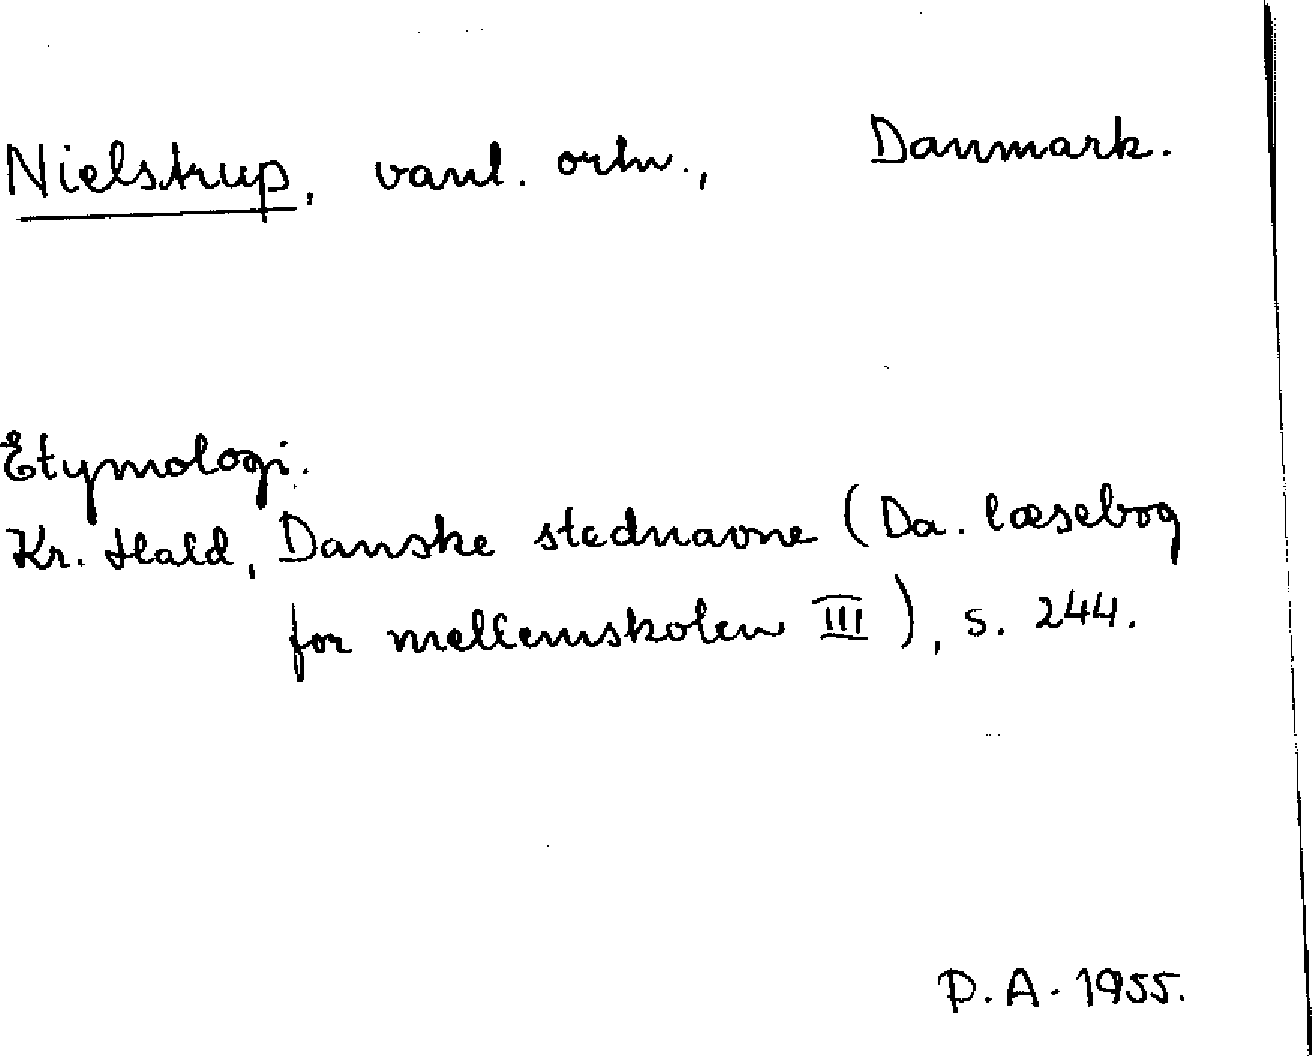 Nielstrup, vanl. ortn., Danmark.
Etymologi.
Kr. Hald, Danske stednavne (Da. læsebog
for mellemskolen III), s. 244.
P. A. 1955.